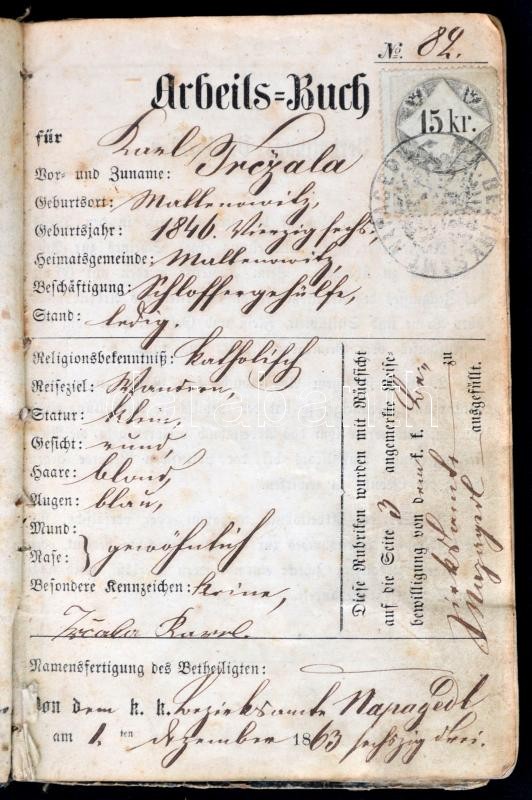 No. 82.
Arbeits=Buch
15 kr.
für Karl Trčžala
Vor- und Zuname:
Geburtsort: Mallenowitz,
Geburtsjahr: 1846. Vierzig sechs,
Heimatsgemeinde: Mallenowitz,
Beschäftigung: Schlossergehülfe,
Stand: ledig.
Religionsbekenntniß: katholisch
Reiseziel: Wandern,
Statur: klein,
Gesicht: rund
Haare: blond,
Augen: blau,
Mund:
Nase: } gewöhnlich
Besondere Kennzeichen: keine,
Diese Rubriken wurden mit Rücksicht
auf die Seite 3 angemerkte Reise-
bewilligung von dem k. k. Be-
zirksamte zu
Napagedl ausgefüllt.
Trčala Karel.
Namensfertigung des Betheiligten:
Von dem k. k. Bezirksamte Napagedl
am 1. ten Dezember 1863 sechszig drei.